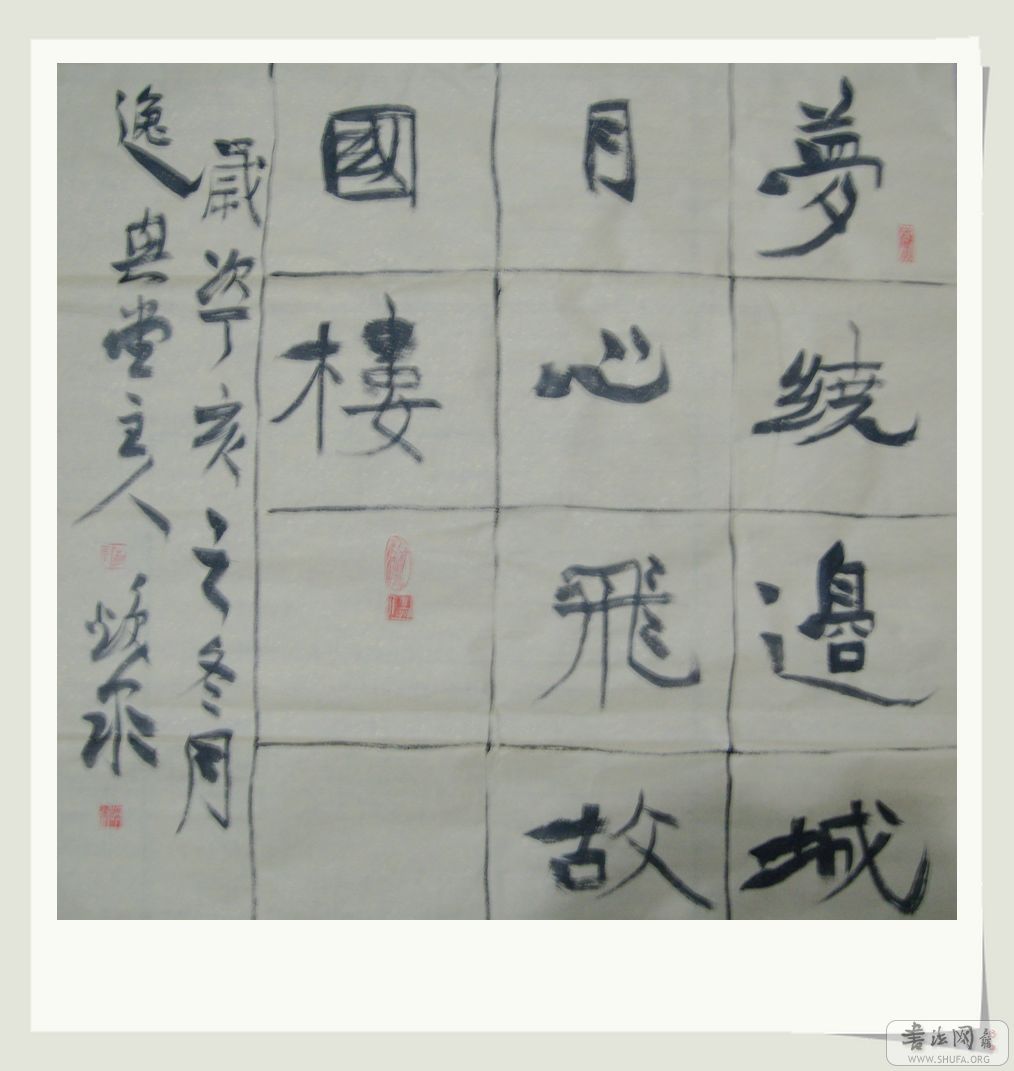 夢繞邊城
月心飛故
國樓
歲次丁亥之冬月
逸堂主人 泉
書法网
WWW.SHUFA.ORG